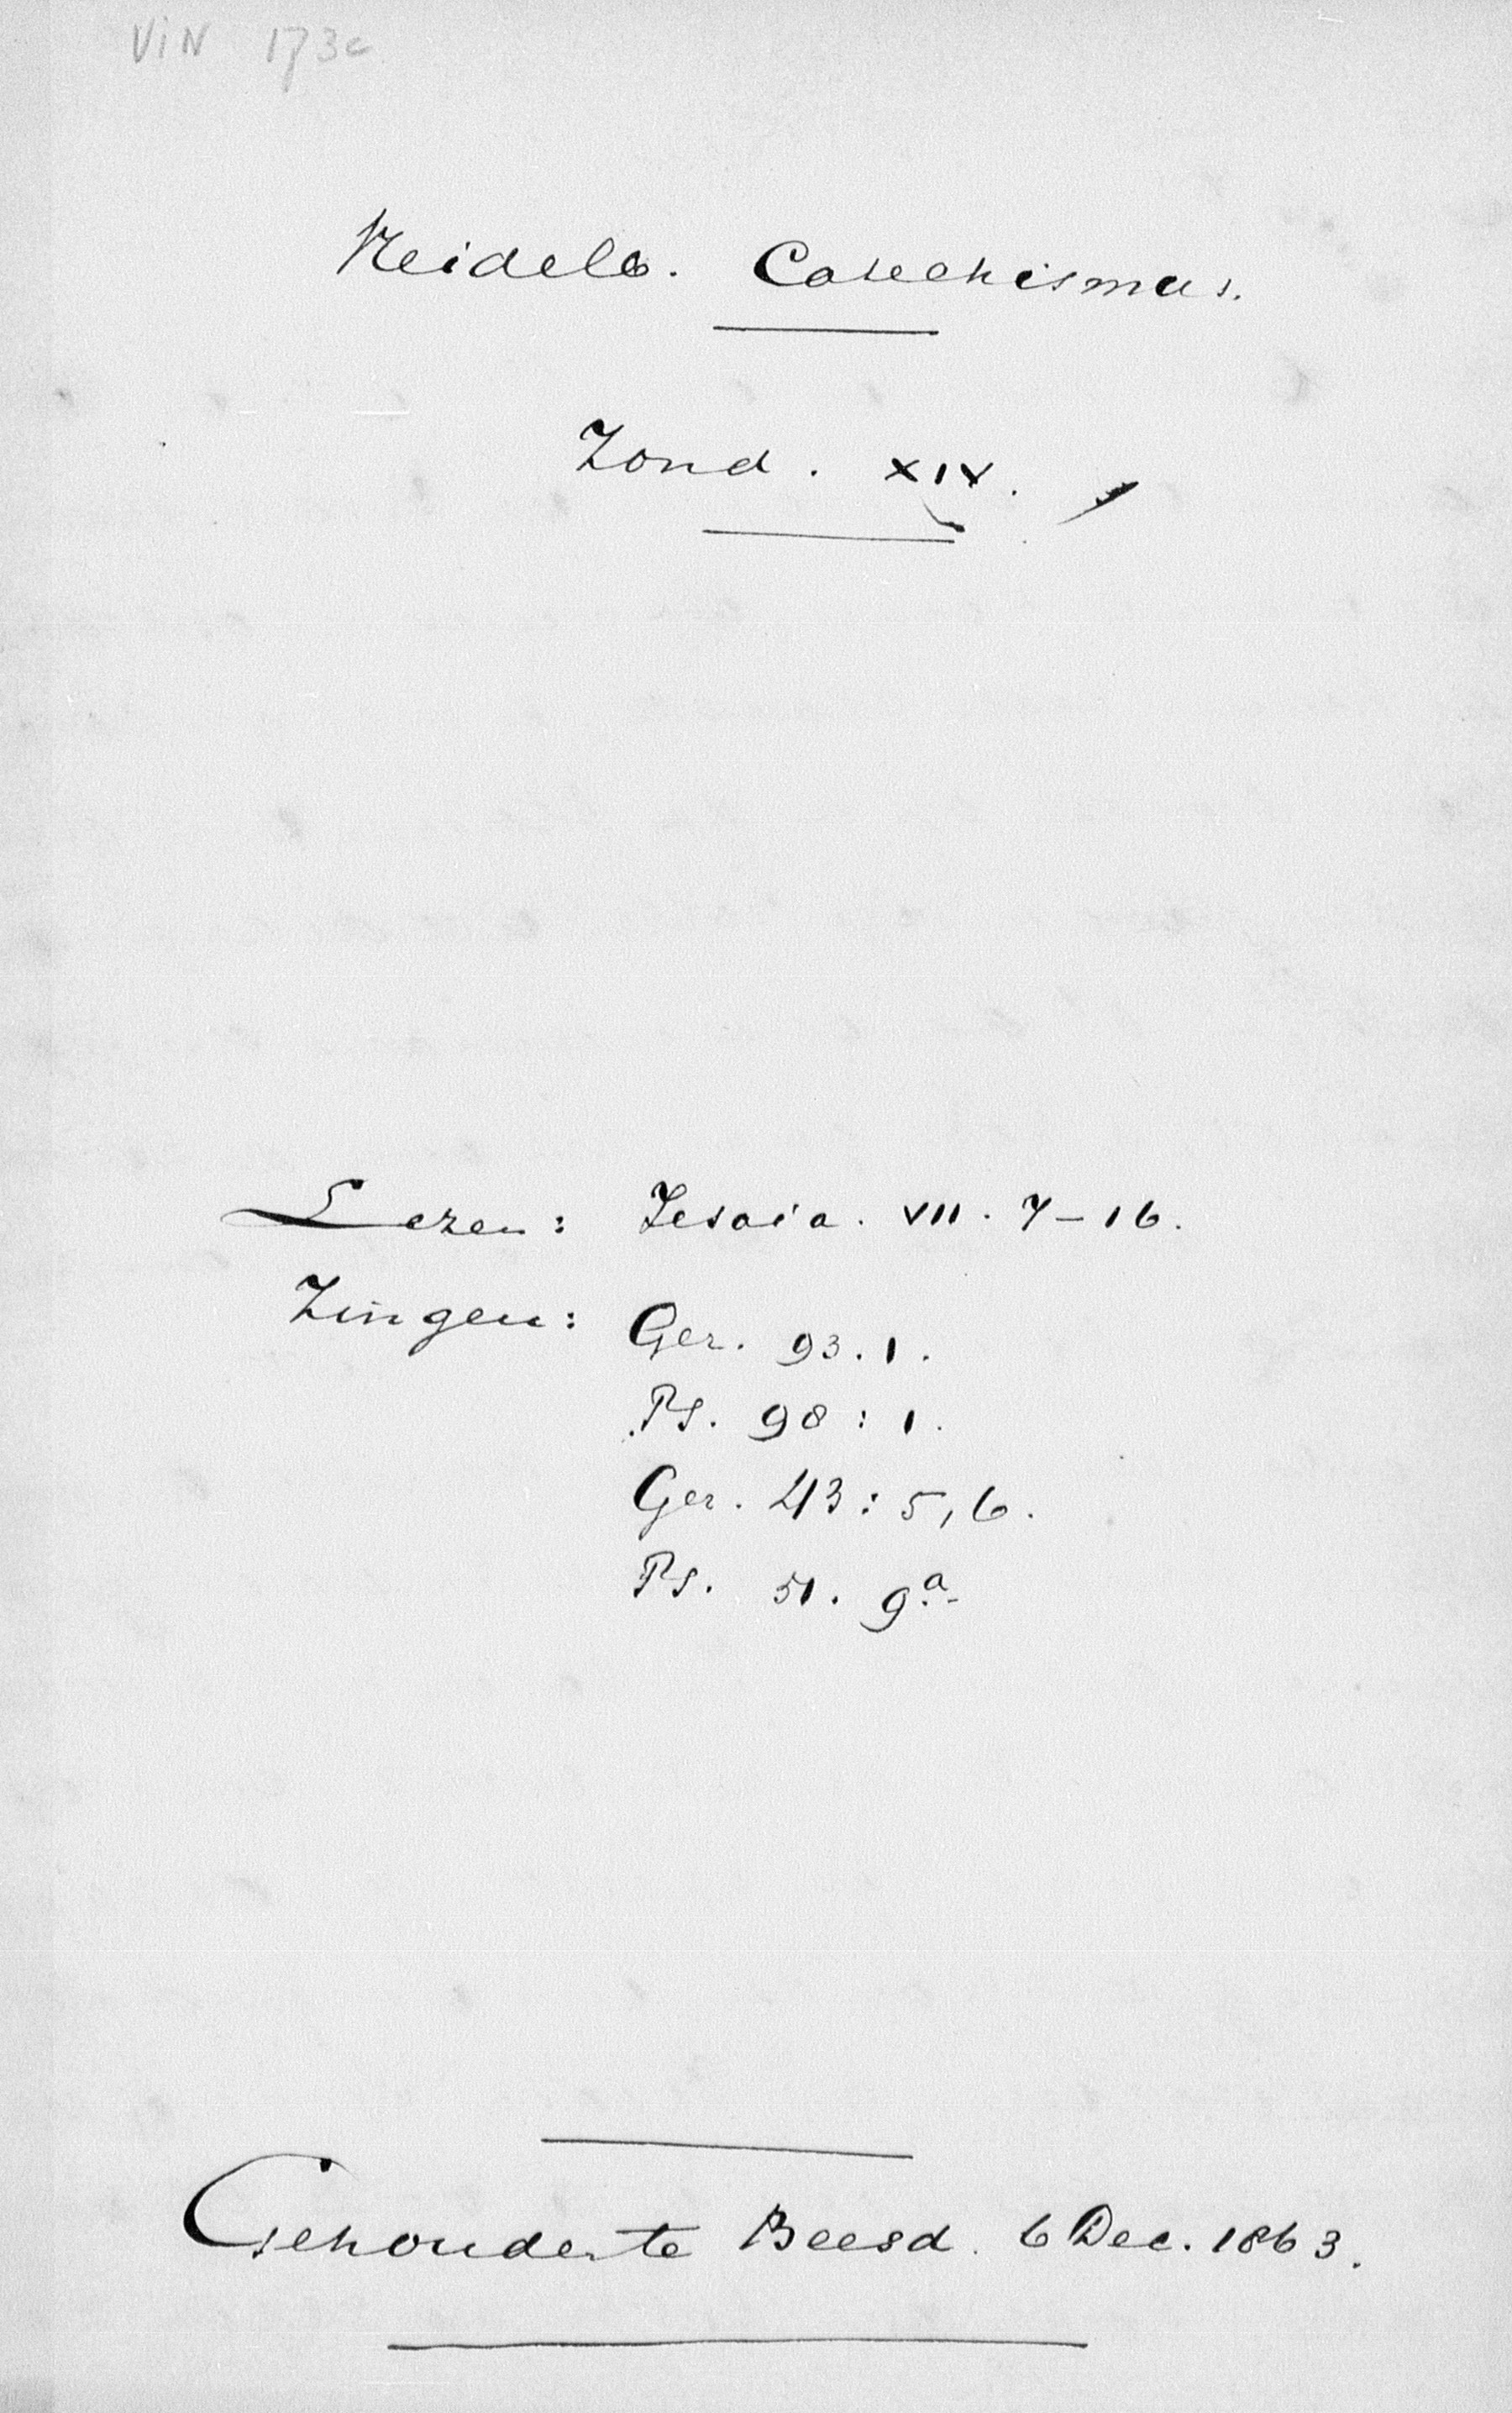 VIN 173c
Heidelb. Catechismus.
Zond. XIV.
Lezen: Jesaia. VII. 7-16.
Zingen: Gez. 93.1.
Ps. 98:1.
Gez. 43:5,6.
Ps. 51. 9a
Gehouden te Beesd. 6 Dec. 1863.